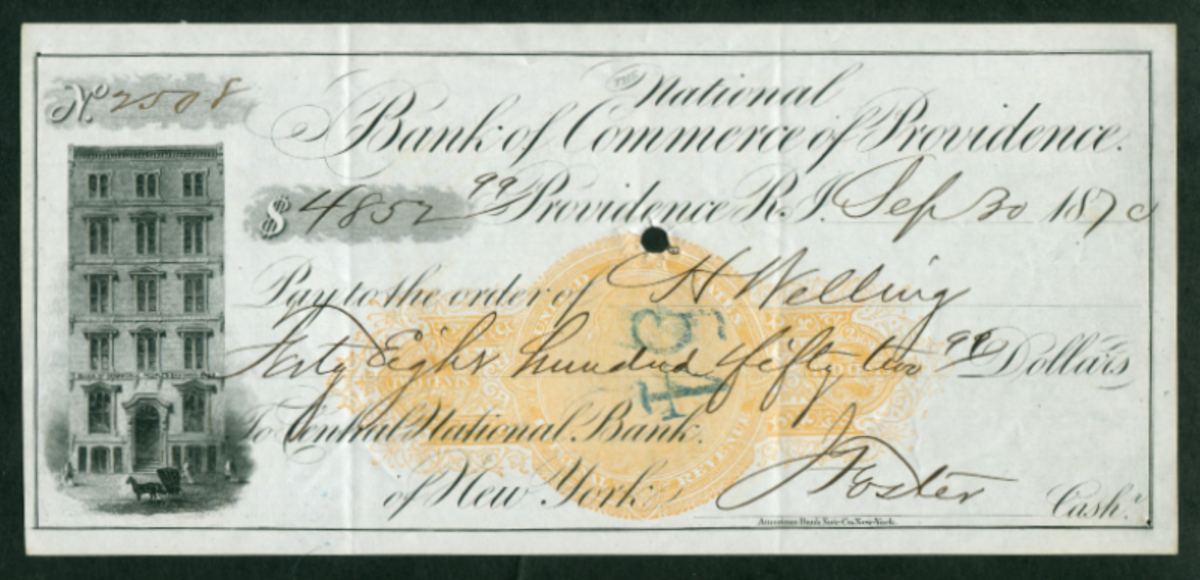 No 2508
The National
Bank of Commerce of Providence.
$ 4852 99 Providence R.I. Sep 30 187
Pay to the order of H Welling
Forty Eight hundred fifty two 99 Dollars
To Central National Bank.
of New York
J Foster Cash.r
American Bank Note Co. New York.